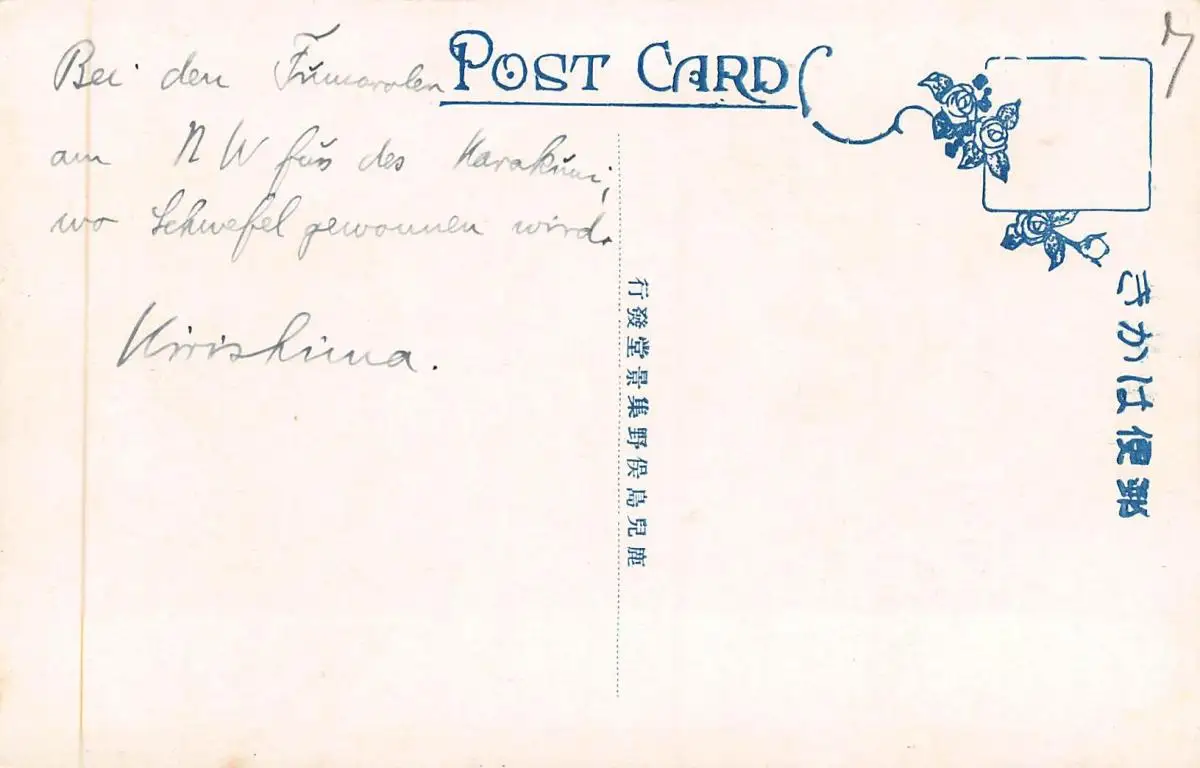 POST CARD
7
Bei den Fumarolen
am NW fus des Karakuni,
wo Schwefel gewonnen wird.
Kirishima.
郵便はかき
鹿兒島俣野集景堂發行